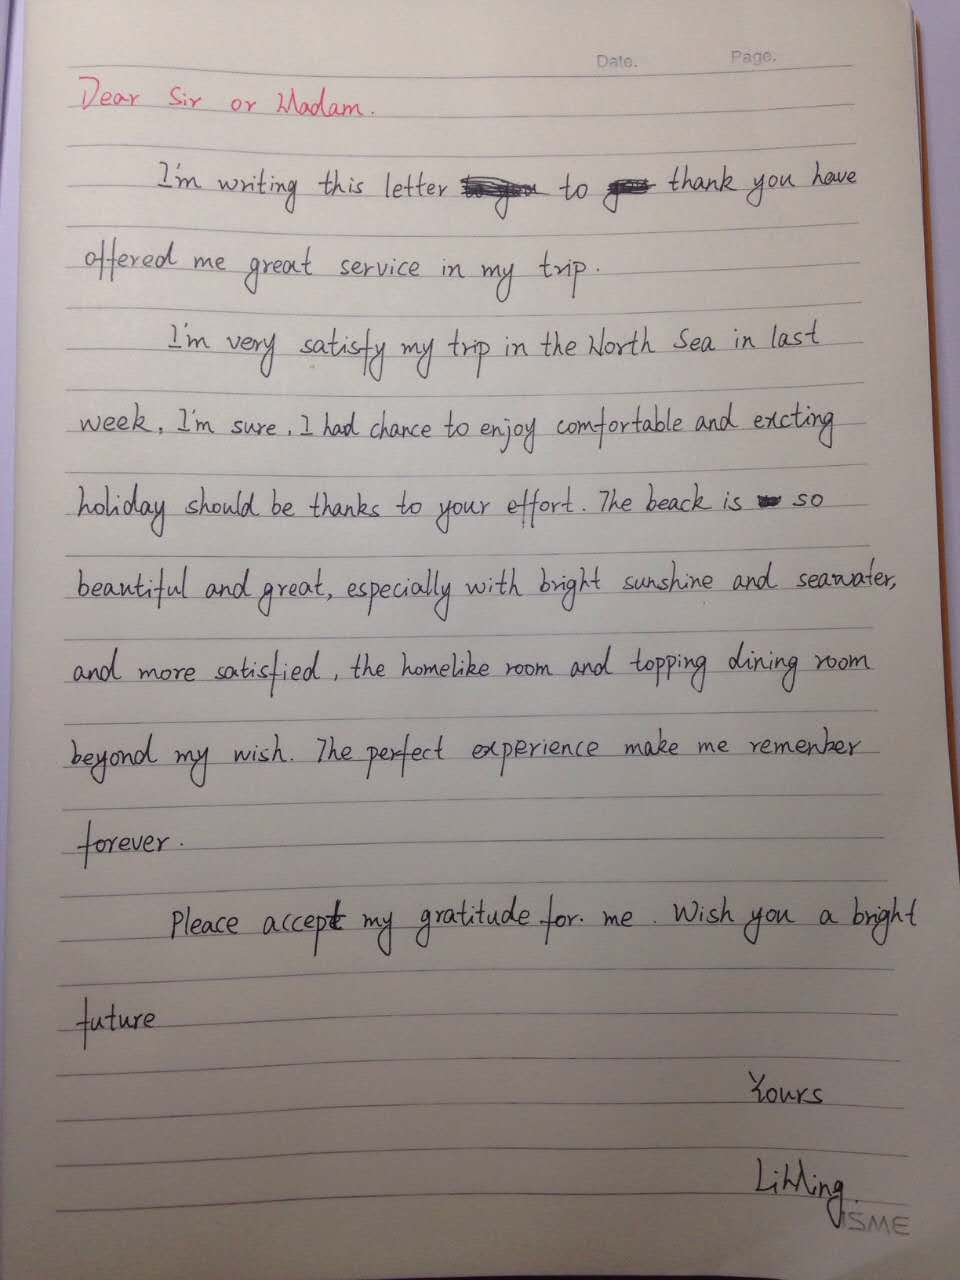 Date. Page.
Dear Sir or Madam.
I'm writing this letter to thank you have
offered me great service in my trip.
I'm very satisfy my trip in the North Sea in last
week, I'm sure, I had chance to enjoy comfortable and excting
holiday should be thanks to your effort. The beack is so
beautiful and great, especially with bright sunshine and seawater,
and more satisfied, the homelike room and topping dining room
beyond my wish. The perfect experience make me remenber
forever.
Pleace accept my gratitude for. me. Wish you a bright
future
Yours
LiMing.
ISME